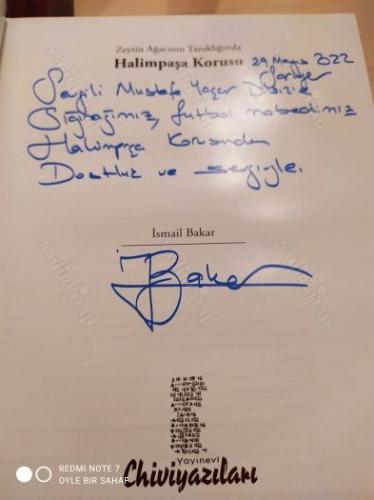 Zeytin Ağacının Tanıklığında
Halimpaşa Korusu
29 Mayıs 2022
Sarıyer
Sevgili Mustafa Yaşar
futbol
Halimpaşa Korusundan
Dostluk ve sevgiyle.
İsmail Bakar
Bakar
Yayınevi
Chiviyazıları
REDMI NOTE 7
OYLE BIR SAHAF